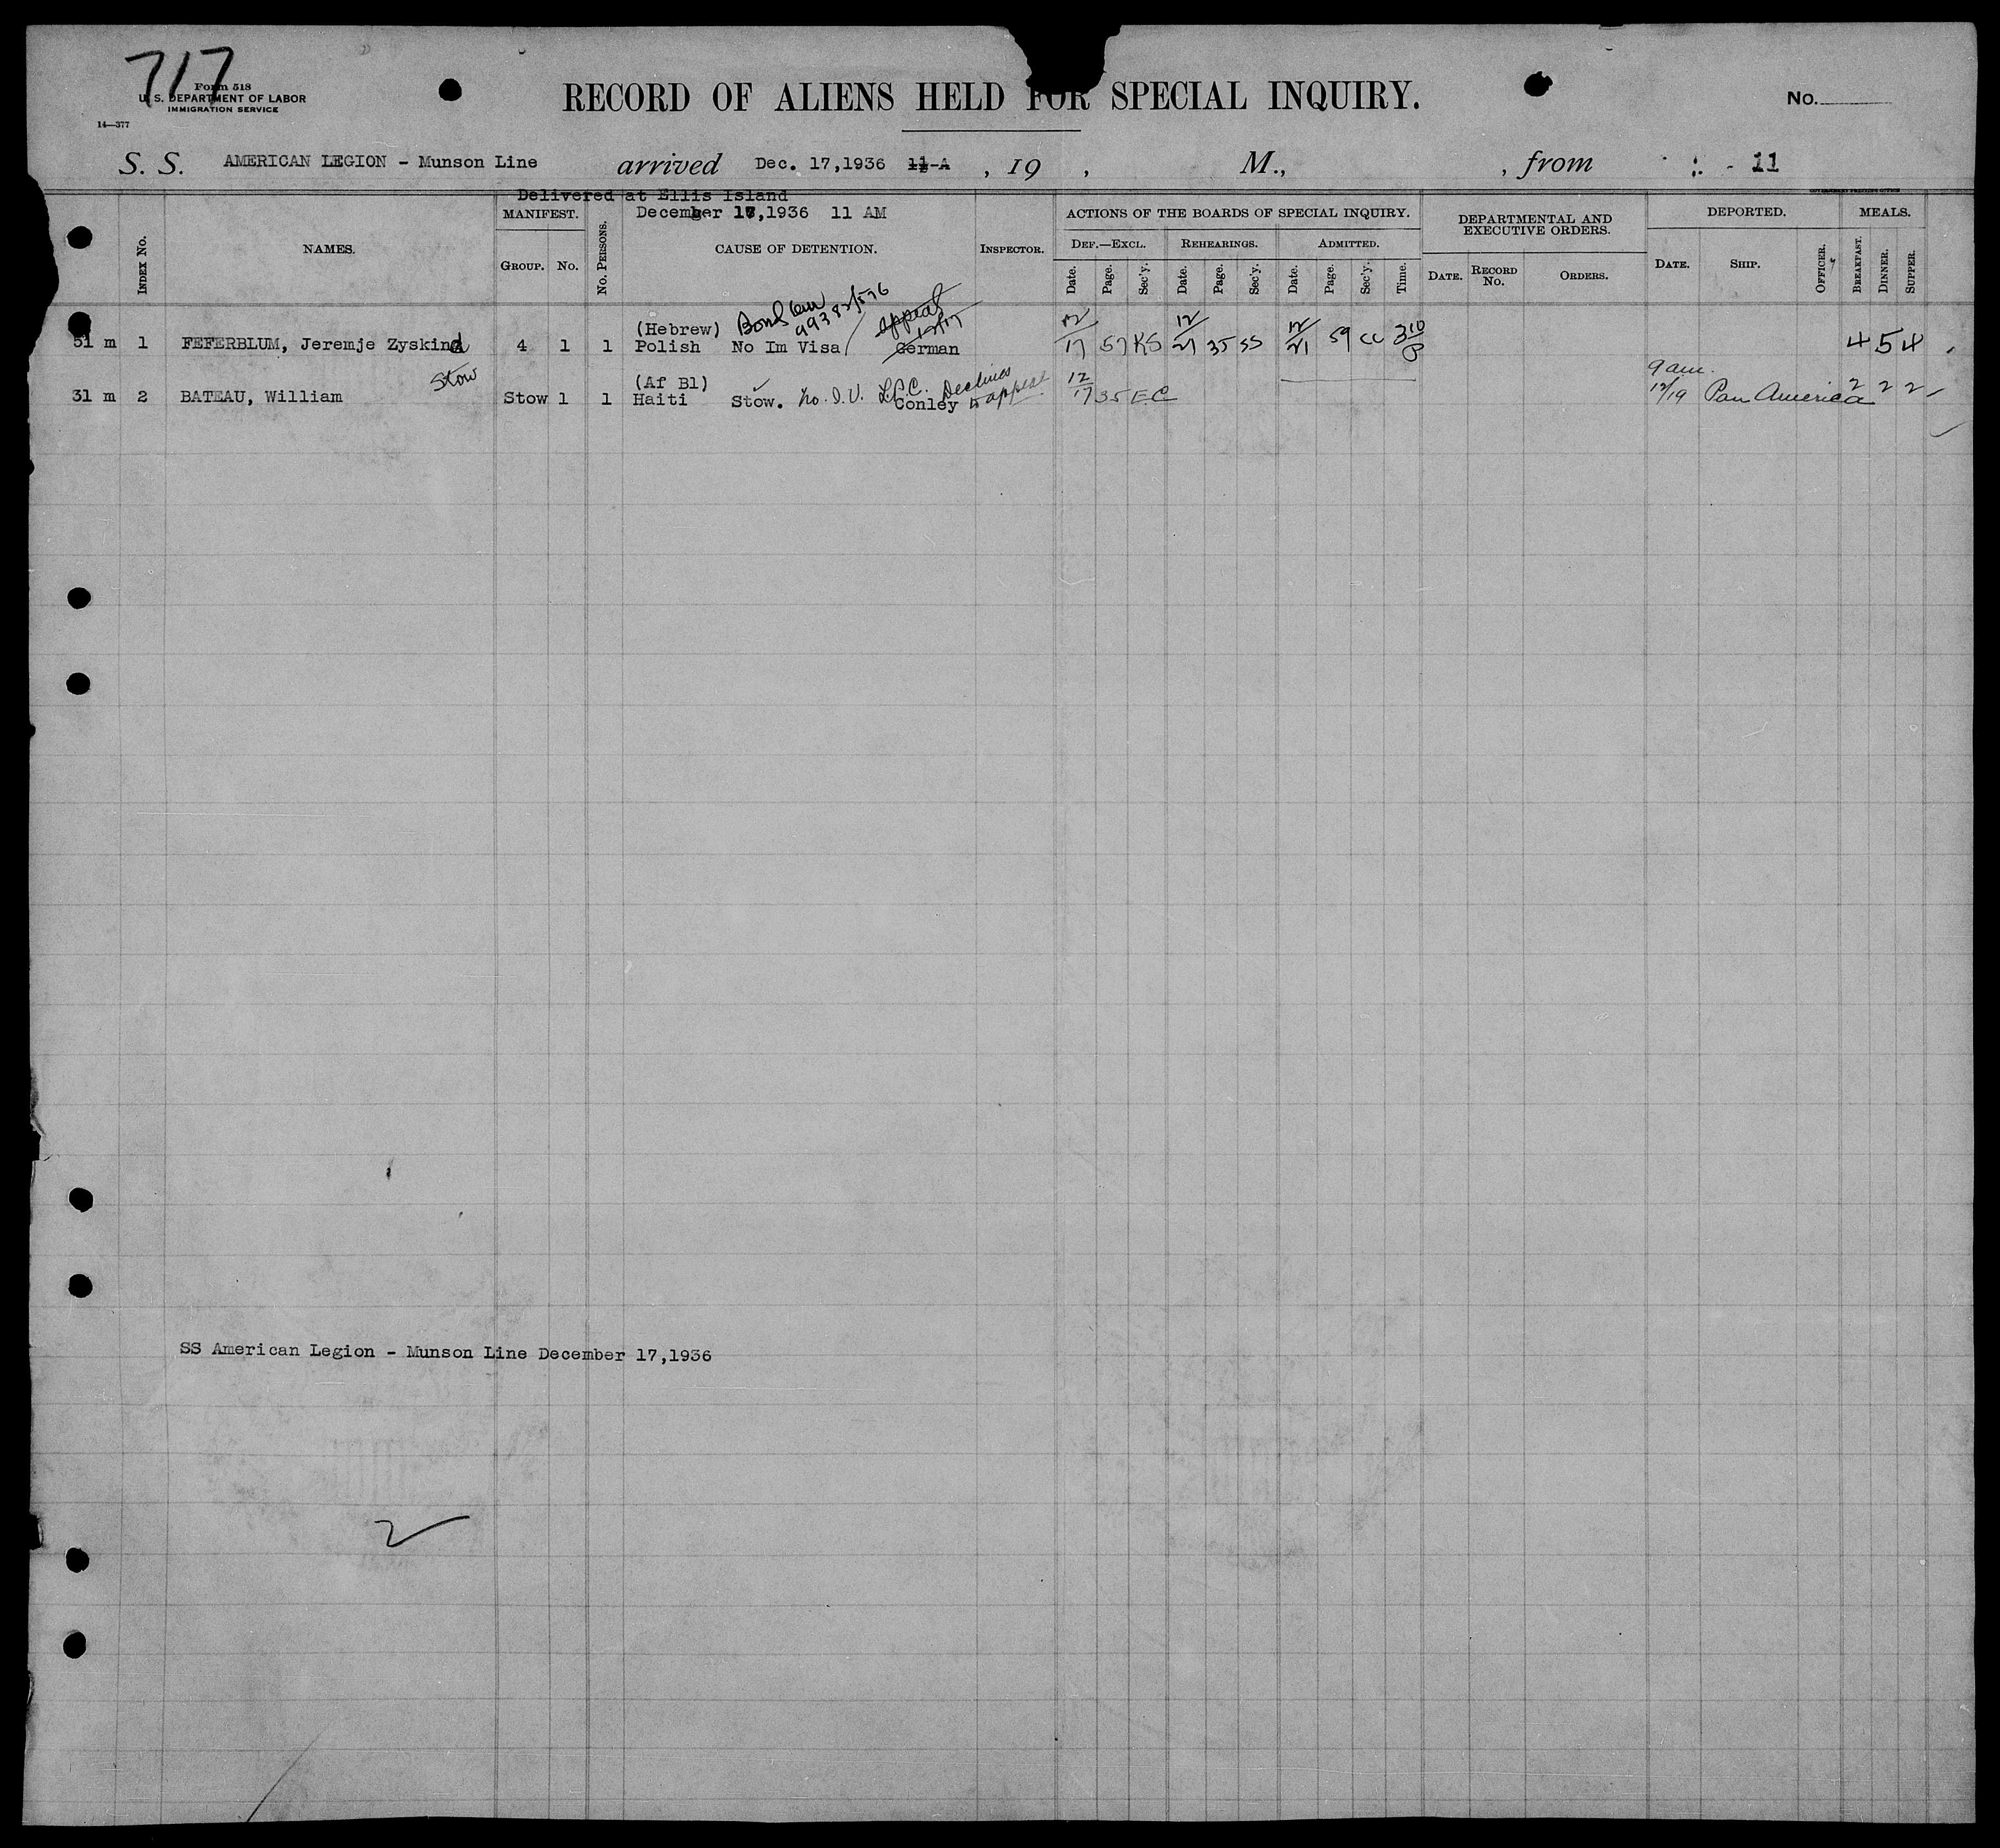 717
Form 518
U. S. DEPARTMENT OF LABOR
IMMIGRATION SERVICE
14—377
RECORD OF ALIENS HELD FOR SPECIAL INQUIRY.
No.
S. S. AMERICAN LEGION - Munson Line arrived Dec. 17,1936 11-A , 19 , M., , from 11
Delivered at Ellis Island
December 17,1936 11 AM
INDEX No. NAMES. MANIFEST. GROUP. No. No. PERSONS. CAUSE OF DETENTION. INSPECTOR.
ACTIONS OF THE BOARDS OF SPECIAL INQUIRY.
DEF.—EXCL. REHEARINGS. ADMITTED.
Date. Page. Sec'y. Date. Page. Sec'y. Date. Page. Sec'y. Time.
DEPARTMENTAL AND
EXECUTIVE ORDERS.
DATE. RECORD No. ORDERS.
DEPORTED.
DATE. SHIP. OFFICER.
MEALS.
BREAKFAST. DINNER. SUPPER.
Bond
99382/596 appeal
(Hebrew) 12/17
51 m 1 FEFERBLUM, Jeremje Zyskind 4 1 1 Polish No Im Visa German 12/17 57 KS 12/21 35 SS 12/21 59 CC 3 10 4 5 4
Stow
(Af Bl) 9 am.
31 m 2 BATEAU, William Stow 1 1 Haiti Stow. No. I. V. L.P.C. Conley Declines to appeal 12/17 35 EC 12/19 Pan America 2 2 2
SS American Legion - Munson Line December 17,1936
2